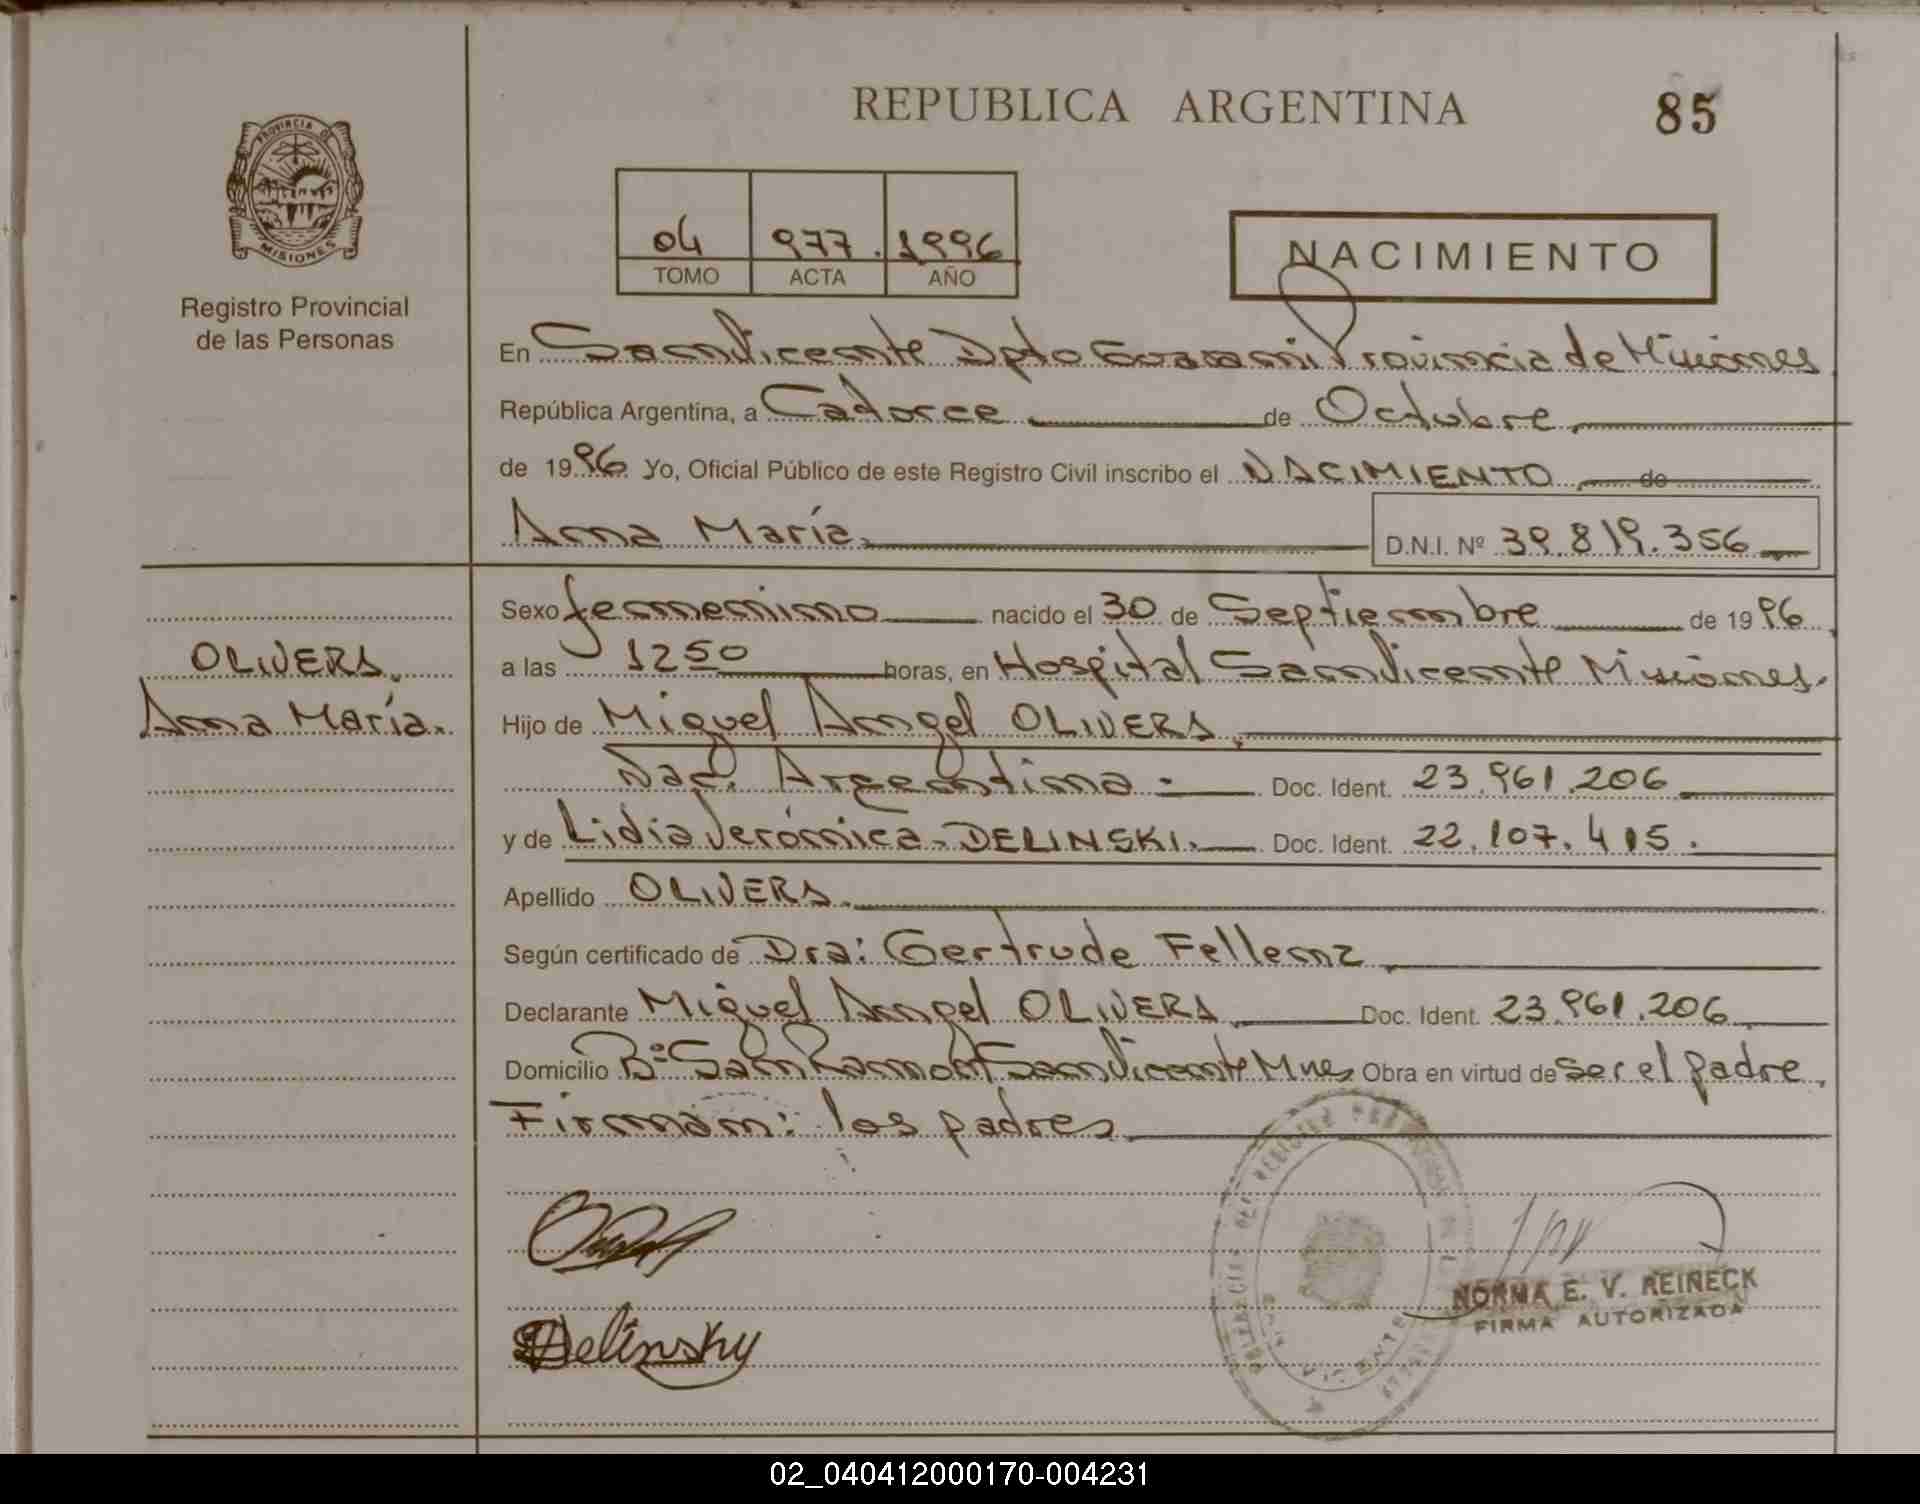 REPUBLICA ARGENTINA
85
PROVINCIA DE
MISIONES
Registro Provincial
de las Personas
04 977. 1996
TOMO ACTA AÑO
NACIMIENTO
En San Vicente Dpto Guarani Provincia de Misiones
República Argentina, a Catorce de Octubre
de 1996 Yo, Oficial Público de este Registro Civil inscribo el NACIMIENTO de
Anna María. D.N.I. Nº 39.819.356
Sexo femenino nacido el 30 de Septiembre de 1996
OLIVERA.
a las 1250 horas, en Hospital San Vicente Misiones.
Anna María.
Hijo de Miguel Angel OLIVERA
Nac. Argentina Doc. Ident. 23.961.206
y de Lidia Verónica DELINSKI. Doc. Ident. 22.107.415.
Apellido OLIVERA.
Según certificado de Dra: Gertrude Fellenz
Declarante Miguel Angel OLIVERA Doc. Ident. 23.961.206
Domicilio Bº San Ramón San Vicente Mnes Obra en virtud de ser el padre.
Firman: los padres
Delinsky
NORMA E. V. REINECK
FIRMA AUTORIZADA
02_040412000170-004231